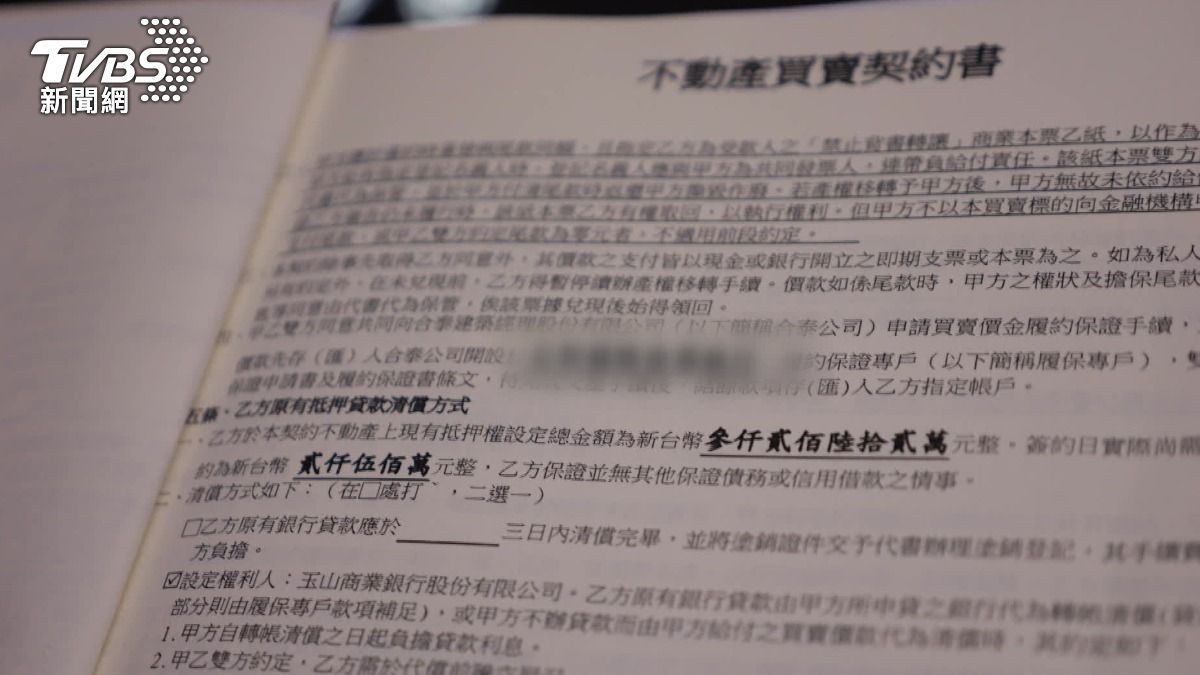 TVBS
新聞網
不動產買賣契約書
且指定乙方為受款人之「禁止背書轉讓」商業本票乙紙,以作為
登記名義人應與甲方為共同發票人,連帶負給付責任。該紙本票雙方
若產權移轉予甲方後,甲方無故未依約給
該紙本票乙方有權取回,以執行權利。但甲方不以本買賣標的向金融機構
或甲乙雙方約定尾款為零元者,不適用前段約定。
除事先取得乙方同意外,其價款之支付皆以現金或銀行開立之即期支票或本票為之。如為私人
在未兌現前,乙方得暫停續辦產權移轉手續。價款如係尾款時,甲方之權狀及擔保尾款
同意由代書代為保管,俟該票據兌現後始得領回。
甲乙雙方同意共同向合泰建築經理股份有限公司(以下簡稱合泰公司)申請買賣價金履約保證手續,
價款先存(匯)入合泰公司開設 約保證專戶(以下簡稱履保專戶),雙
保證申請書及履約保證書條文, (匯)入乙方指定帳戶。
五條、乙方原有抵押貸款清償方式
一、乙方於本契約不動產上現有抵押權設定總金額為新台幣參仟貳佰陸拾貳萬元整。簽約日實際尚需
約為新台幣 貳仟伍佰萬元整,乙方保證並無其他保證債務或信用借款之情事。
二、清償方式如下:(在□處打ˇ,二選一)
□乙方原有銀行貸款應於______三日內清償完畢,並將塗銷證件交予代書辦理塗銷登記,其手續費
方負擔。
☑設定權利人:玉山商業銀行股份有限公司。乙方原有銀行貸款由甲方所申貸之銀行代為轉帳清償(貸
部分則由履保專戶款項補足),或甲方不辦貸款而由甲方給付之買賣價款代為清償時,其約定如下:
1.甲方自轉帳清償之日起負擔貸款利息。
2.甲乙雙方約定,乙方需於代償前